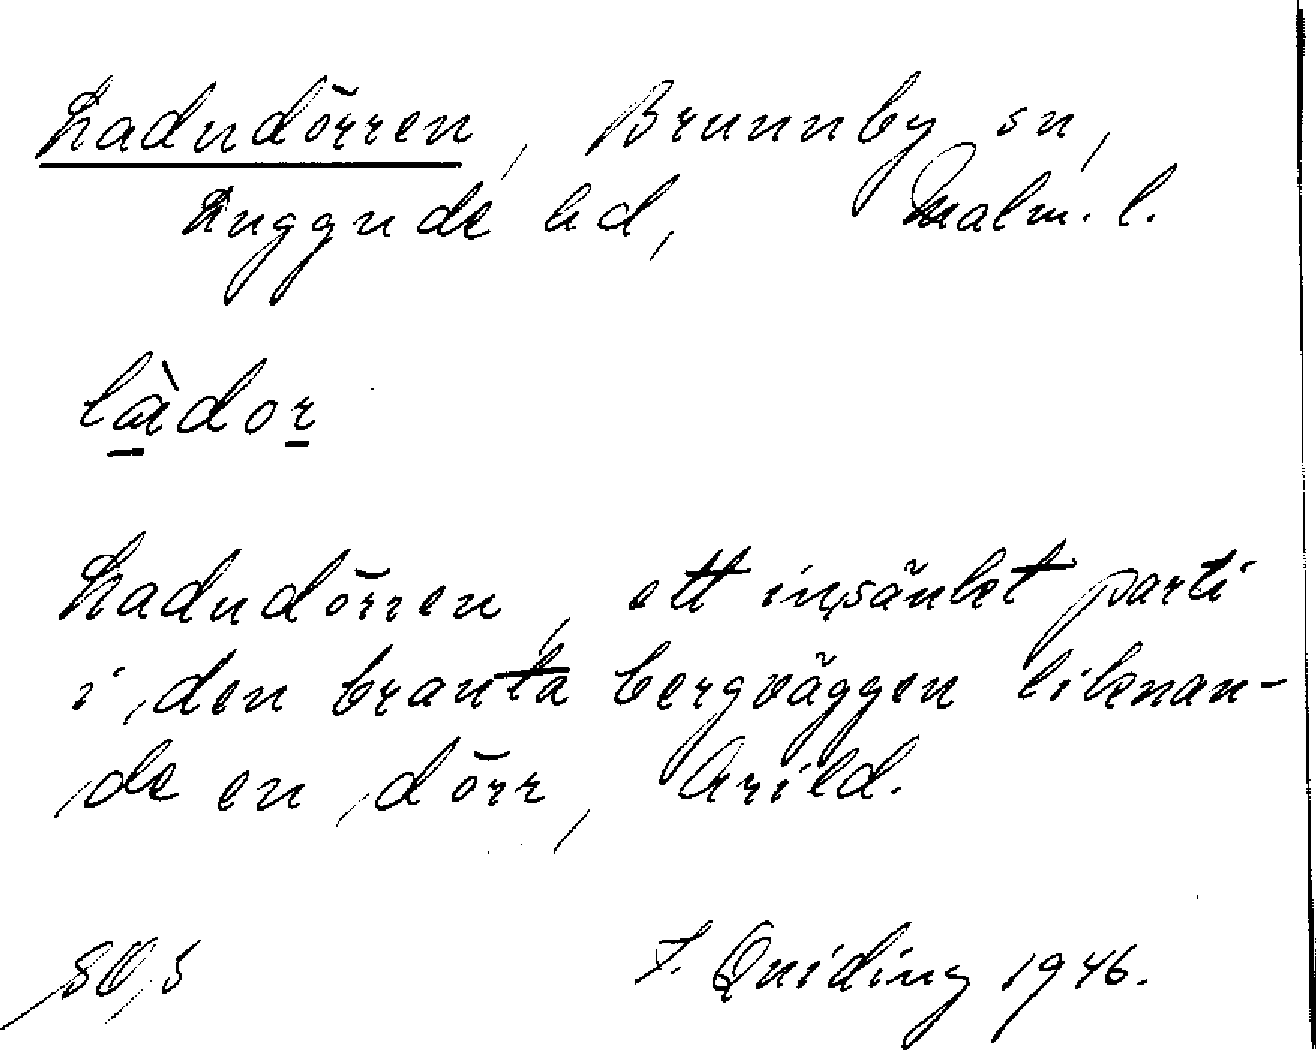 Ladudörren, Brunnby sn,
Luggude hd, Malm. l.
làdor
Ladudörren, ett insänkt parti
i den branta bergväggen liknan-
de en dörr, Arild.
SO, 5
F. Quiding 1946.